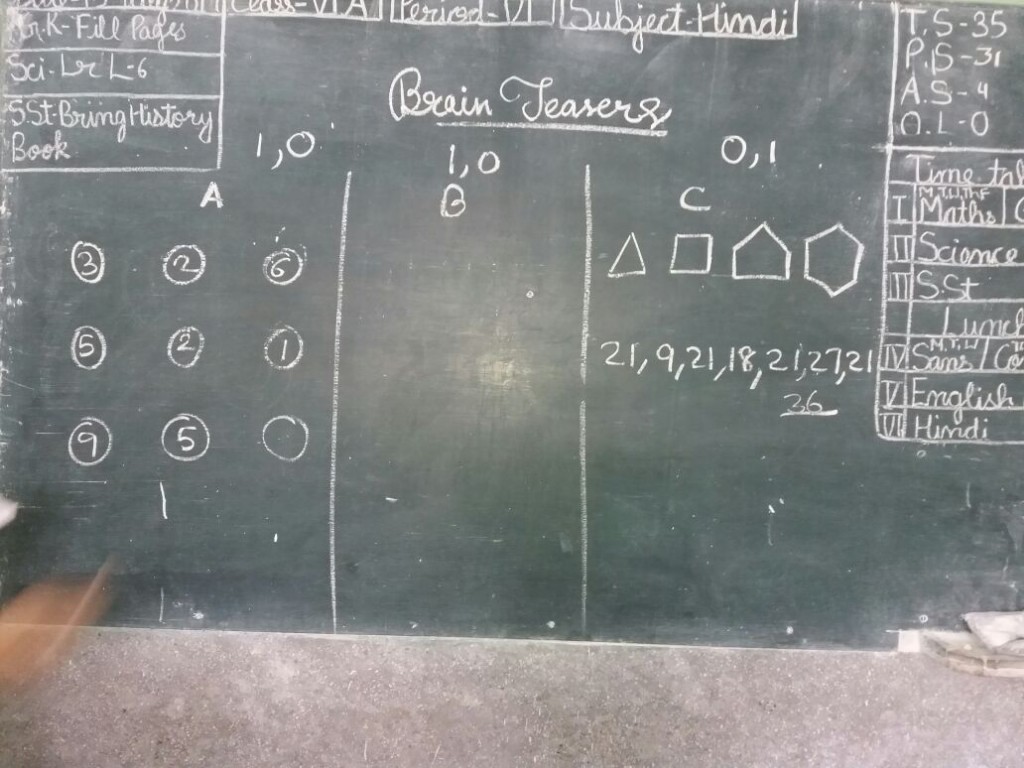 Class-VI A Period-VI Subject-Hindi
G.K-Fill Pages
Sci-Lr L-6
S.St-Bring History
Book
T.S-35
P.S-31
A.S-4
O.L-0
Brain Teasers
1,0 1,0 0,1
A B C
3 2 6
5 2 1
9 5
21, 9, 21, 18, 21, 27, 21
36
Time
M.T.W.TH.F
I Maths
II Science
III S.St
Lunch
M.T.W
IV Sans/
V English
VI Hindi